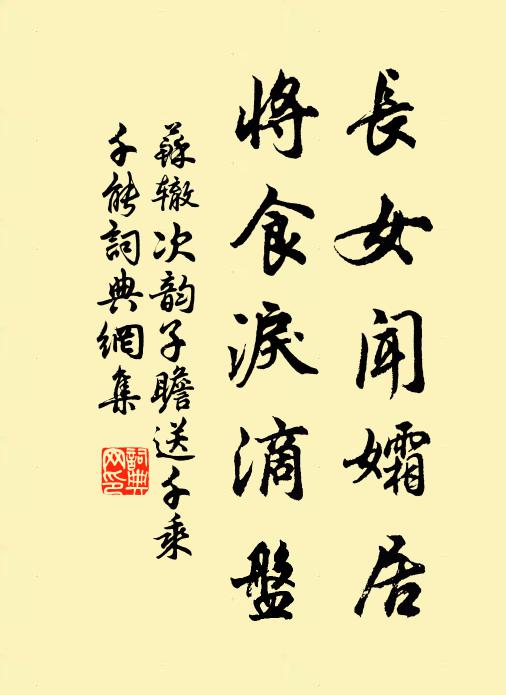 長女聞孀居
將食淚滴盤
蘇辙次韵子瞻送千乘
千能詞典網集
詞典
网印